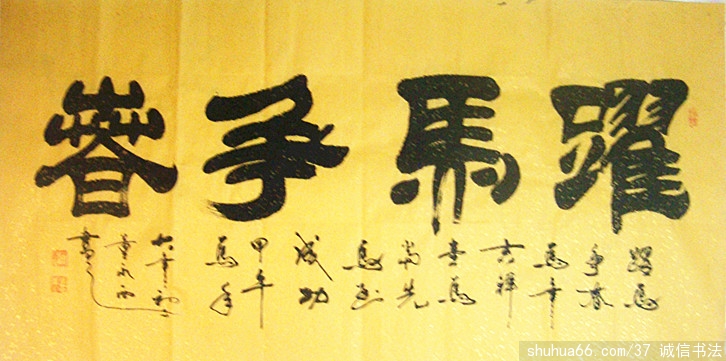 躍馬争春
躍馬
争春
馬年
吉祥
壹馬
當先
馬到
成功
甲午
馬年
書
shuhua66.com/37 诚信书法